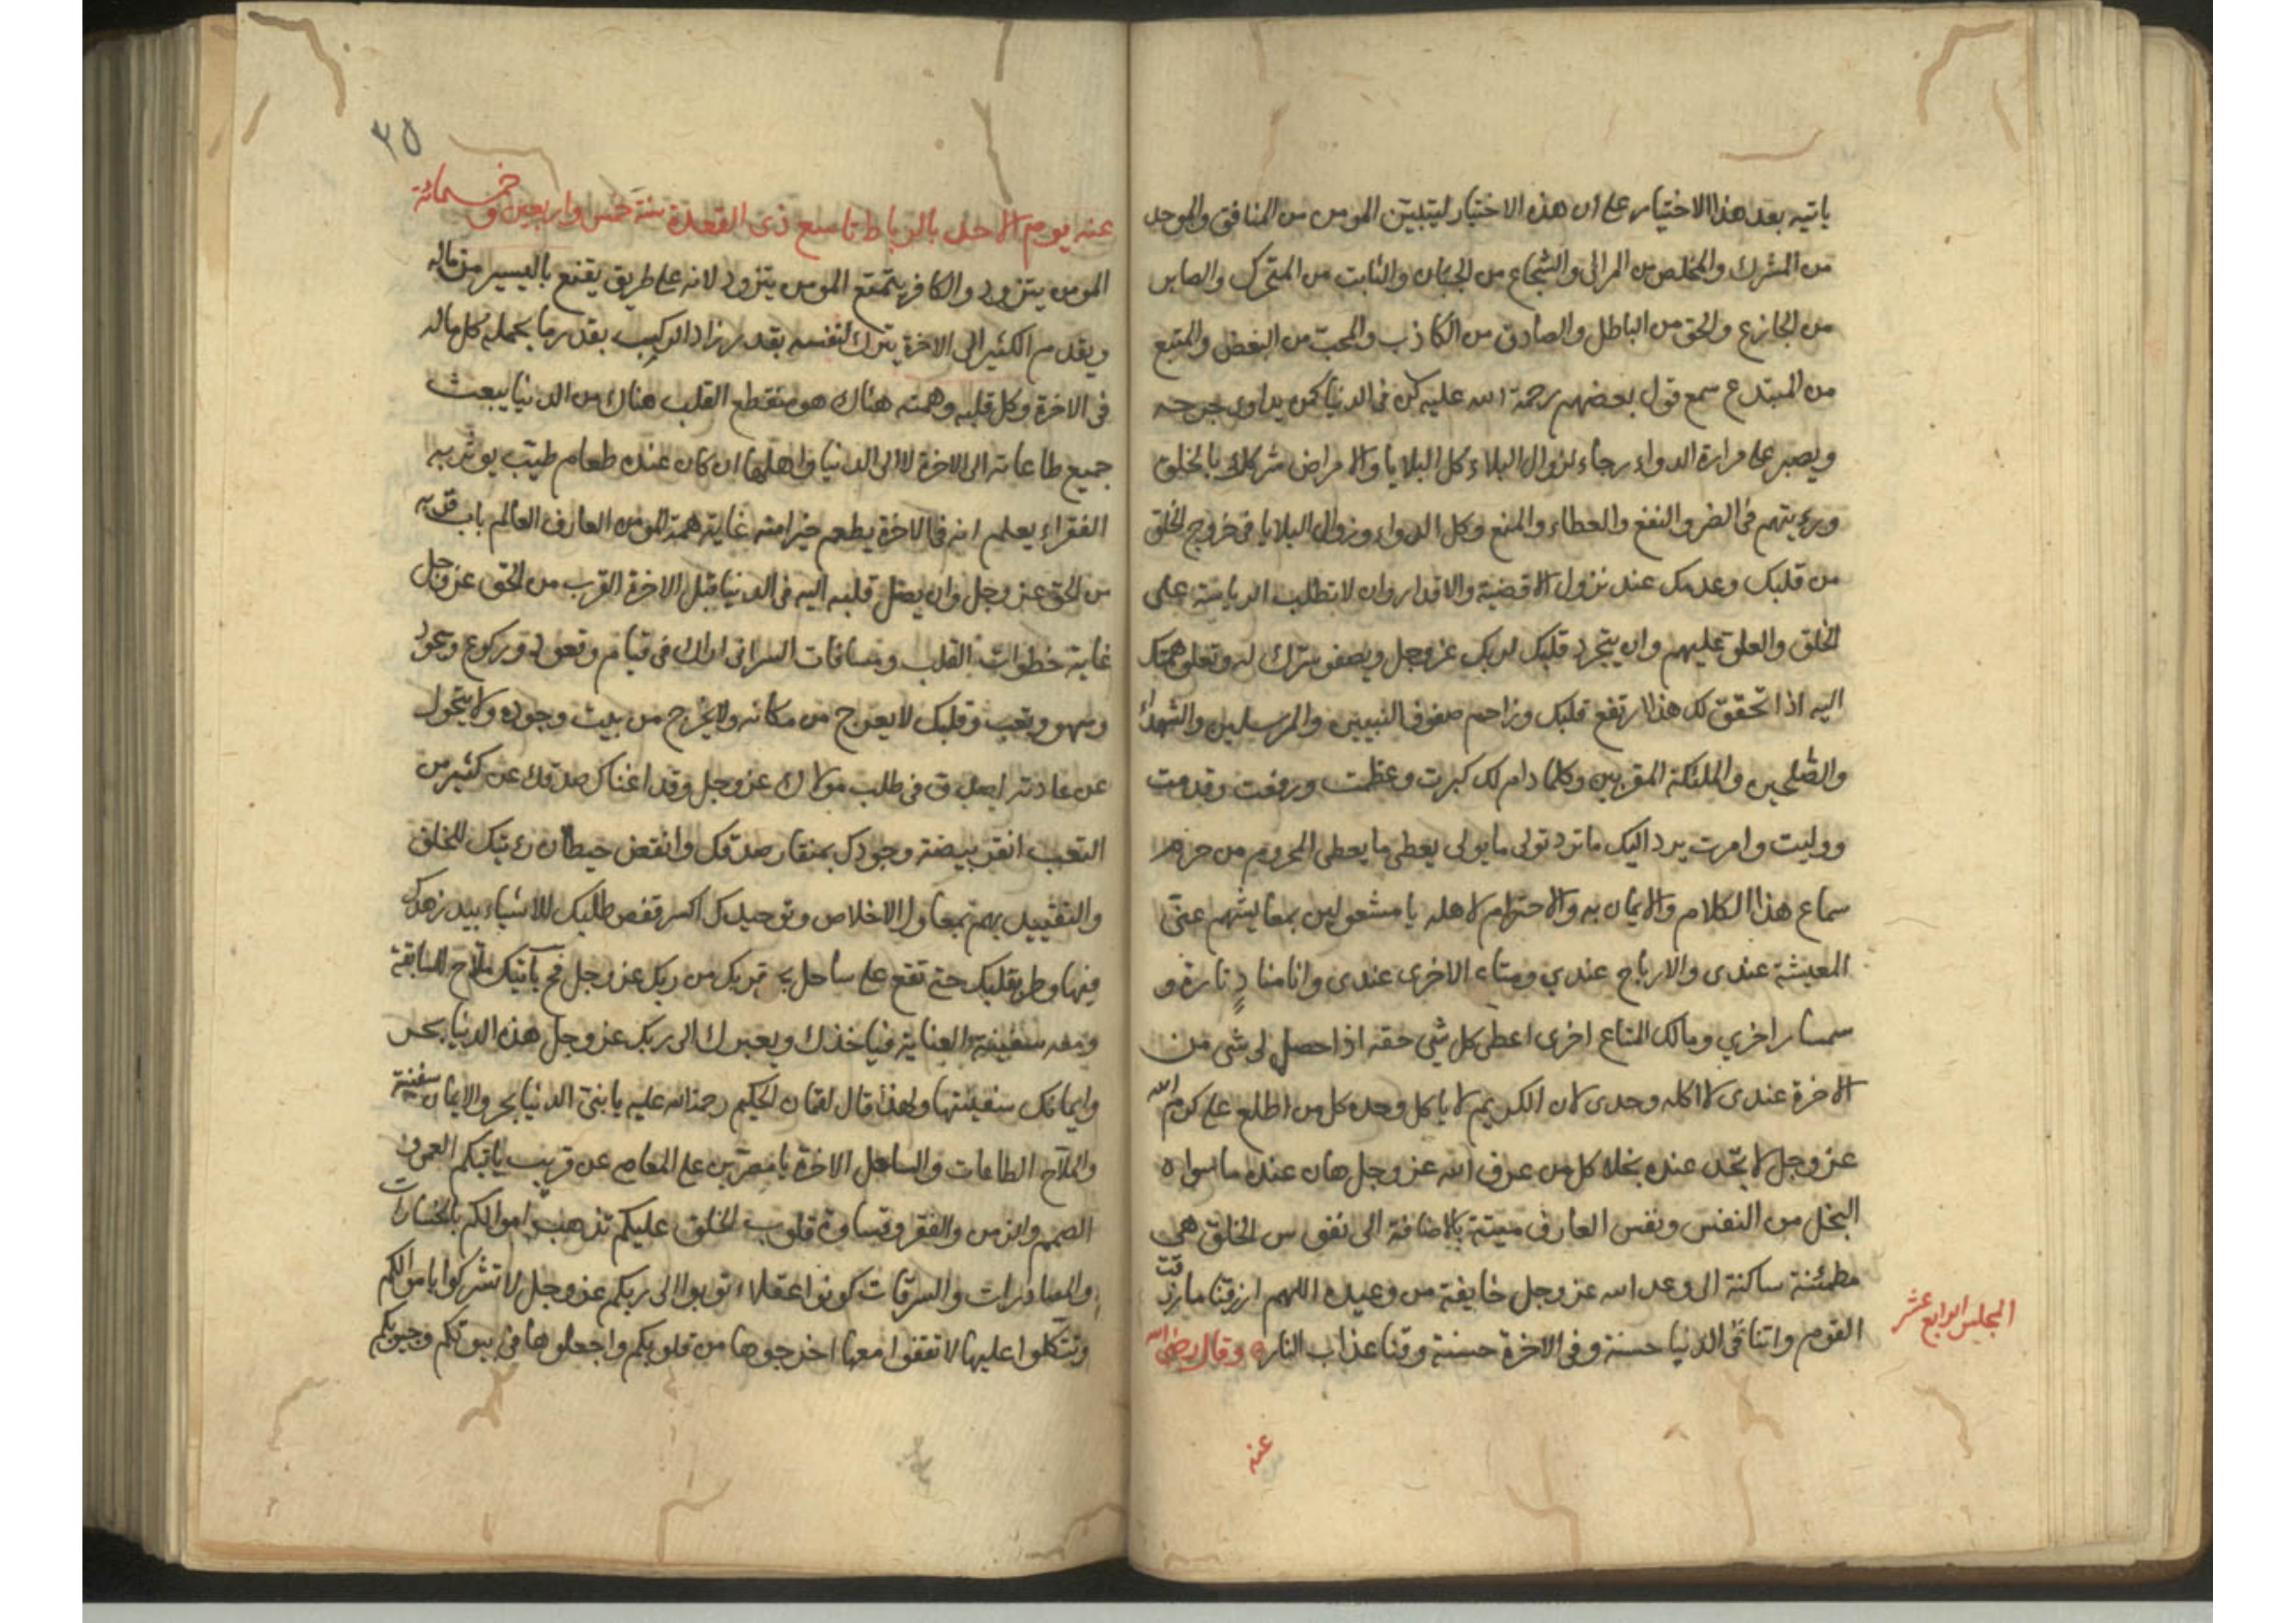 ياتيه بعد هذا الاختيار على ان هذه الاختيار ليتبين المومن من المنافق والموحد
من المشرك والمخلص من المرائى والشجاع من الجبان والثابت من المتحرك والصابر
من الجازع والحق من الباطل والصادق من الكاذب والمحب من البغض والمتبع
من المبتدع سمع قول بعضهم رحمة الله عليه كن فى الدنيا كمن يداوى جرحه
ويصبر على مرارة الدواء رجاء لزوال البلاء كل البلايا والامراض شركك بالخلق
ورءيتهم فى الضر والنفع والعطاء والمنع وكل الدواء وزوال البلايا فى خروج الخلق
من قلبك وعدمك عند نزول الاقضية والاقدار وان لا تطلب الرياسة على
الخلق والعلو عليهم وان يتجرد قلبك لربك عز وجل ويصفو سرك له وتعلو همتك
اليه اذا تحقق لك هذا ارتفع قلبك وزاحم صفوف النبيين والمرسلين والشهداء
والصلحين والملئكة المقربين وكلما دام لك كبرت وعظمت ورفعت وقدمت
ووليت وامرت يرد اليك ما ترد تولى ما يولى يعطى ما يعطى المحروم من حرم
سماع هذا الكلام والايمان به والاحترام لاهله يا مشغولين بمعايشهم عنى
المعيشة عندى والارباح عندي ومتاع الاخرى عندى وانا مناد تارة و
سمسار اخري ومالك المتاع اخرى اعطى كل شى حقه اذا حصل لى شى من
الاخرة عندى لا اكله وحدى لان الكريم لا ياكل وحده كل من اطلع على كرم الله
عز وجل لا تجد عنده بخلا كل من عرف الله عز وجل هان عنده ما سواه
البخل من النفس ونفس العارف ميتة بالاضافة الى نفوس الخلق هى
مطمئنة ساكنة الى وعد الله عز وجل خايفة من وعيده اللهم ارزقنا ما رزقت
القوم واتنا فى الدنيا حسنة وفى الاخرة حسنة وقنا عذاب النار وقال رضى الله
المجلس الرابع عشر
عنه
٢٥
عنه يوم الاحد بالرباط تاسع ذى القعدة سنة خمس واربعين وخمسمائة
المومن يتزود والكافر يتمتع المومن يتزود لانه على طريق يقنع باليسير من ماله
ويقدم الكثير الى الاخرة يترك لنفسه بقدر زاد الركيب بقدر ما يحمله كل ماله
فى الاخرة وكل قلبه وهمته هناك هو منقطع القلب هناك من الدنيا يبعث
جميع طاعاته الى الاخرة لا الى الدنيا واهلها ان كان عنده طعام طيب يوثر به
الفقراء يعلم انه فى الاخرة يطعم خيرا منه غاية همة المومن العارف العالم باب قربه
من الحق عز وجل وان يصل قلبه اليه فى الدنيا قبل الاخرة القرب من الحق عز وجل
غاية خطوات القلب ومسافات السر انى اراك فى قيام وقعود وركوع وسجود
وسهو وتعب وقلبك لا يعرج من مكانه ولا يخرج من بيت وجوده ولا يتحول
عن عادته اصدق فى طلب مولاك عز وجل وقد اغناك صدقك عن كثير من
التعب انقر بيضة وجودك بمنقار صدقك وانقض حيطان رءيتك للخلق
والتقييد بهم بمعاول الاخلاص وتوحيدك اكسر قفص طلبك للاشياء بيد زهدك
فيها وطر بقلبك حتى تقع على ساحل بحر قربك من ربك عز وجل فح ياتيك ملاح السابقة
ومعه سفينة العناية فياخذك ويعبرك الى ربك عز وجل هذه الدنيا بحر
وايمانك سفينتها ولهذا قال لقمان الحكيم رحمة الله عليه يا بنى الدنيا بحر والايمان سفينة
والملاح الطاعات والساحل الاخرة يا مصرين على المعاصى عن قريب ياتيكم العمى و
الصمم والزمن والفقر وقساوة قلوب الخلق عليكم تذهب اموالكم بالخسارات
والمصادرات والسرقات كونوا عقلاء توبوا الى ربكم عز وجل لا تشركوا باموالكم
وتتكلوا عليها لا تقفوا معها اخرجوها من قلوبكم واجعلوها فى بيوتكم وجيوبكم